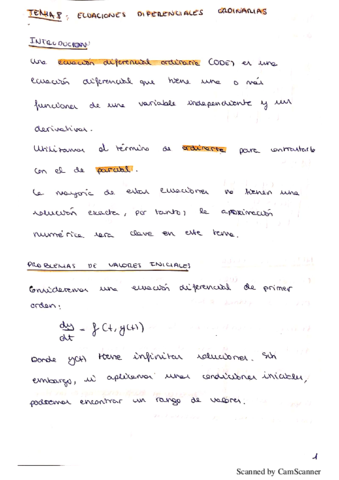 TEMA 8: ECUACIONES DIFERENCIALES ORDINARIAS
INTRODUCCION
Una ecuación diferencial ordinaria (ODE) es una
ecuación diferencial que tiene una o más
funciones de una variable independiente y sus
derivativas.
Utilizamos el término de ordinaria para contrastarlo
con el de parcial.
La mayoría de estas ecuaciones no tienen una
solución exacta, por tanto, la aproximación
numérica será clave en este tema.
PROBLEMAS DE VALORES INICIALES
Consideremos una ecuación diferencial de primer
orden:
dy/dt = f(t, y(t))
Donde y(t) tiene infinitas soluciones. Sin
embargo, si aplicamos unas condiciones iniciales,
podremos encontrar un rango de valores.
1
Scanned by CamScanner